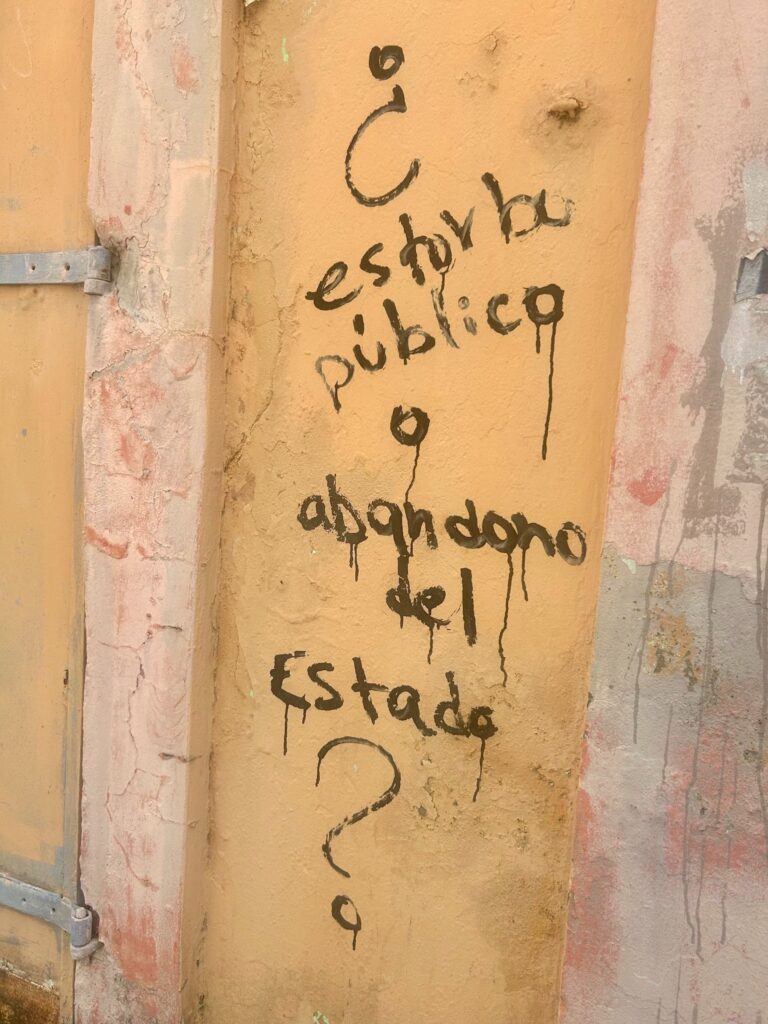 ¿
estorbo
público
o
abandono
del
Estado
?